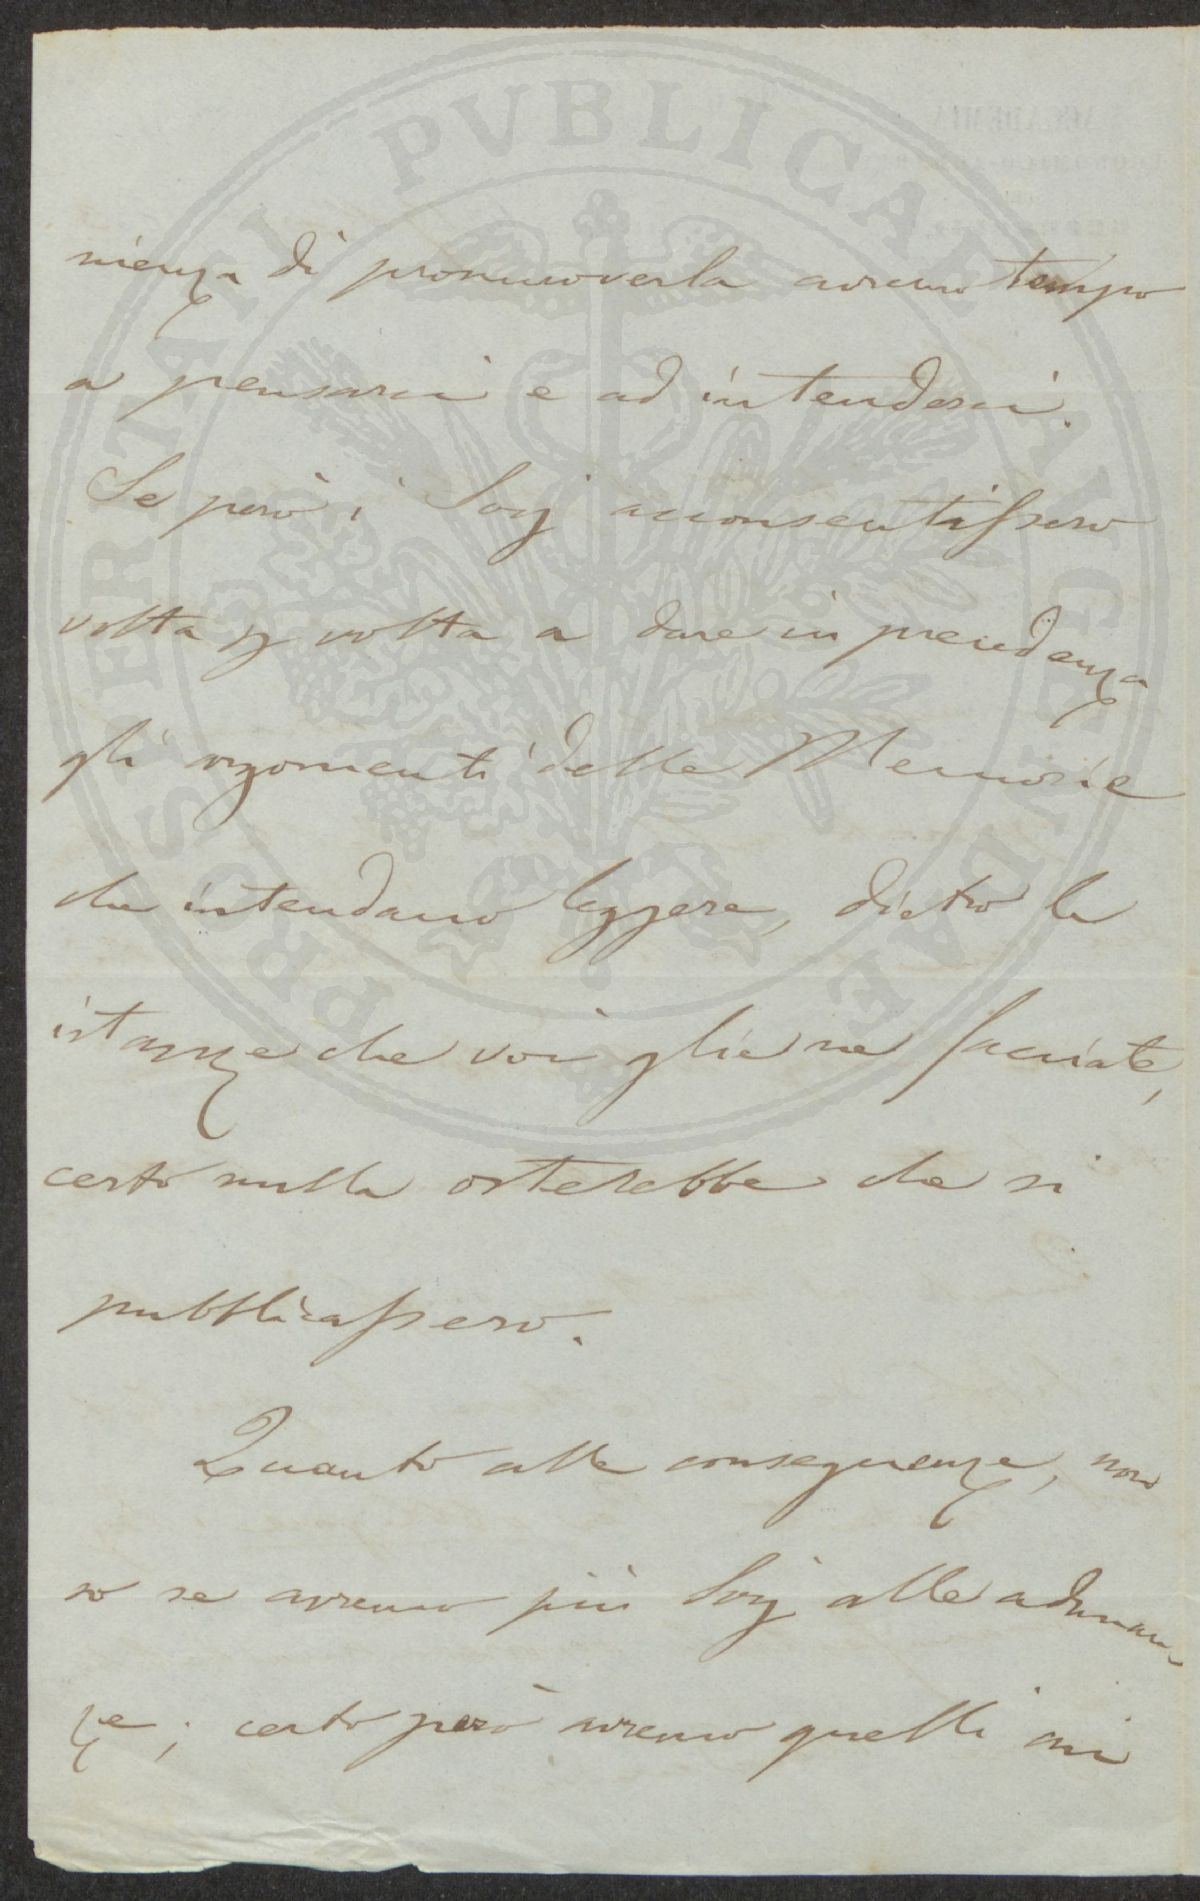 PROSPERITATI PVBLICAE AVGENDAE
nienza di promuoverla avremo tempo
a pensarci e ad intenderci.
Se però i Socj acconsentissero
volta p volta a dare in precedenza
gli argomenti delle Memorie
che intendano leggere, dietro le
istanze che voi gliene facciate,
certo nulla osterebbe che si
pubblicassero.
Quanto alle conseguenze, non
so se avremo più Socj alle adunan
ze; certo però avremo quelli cui